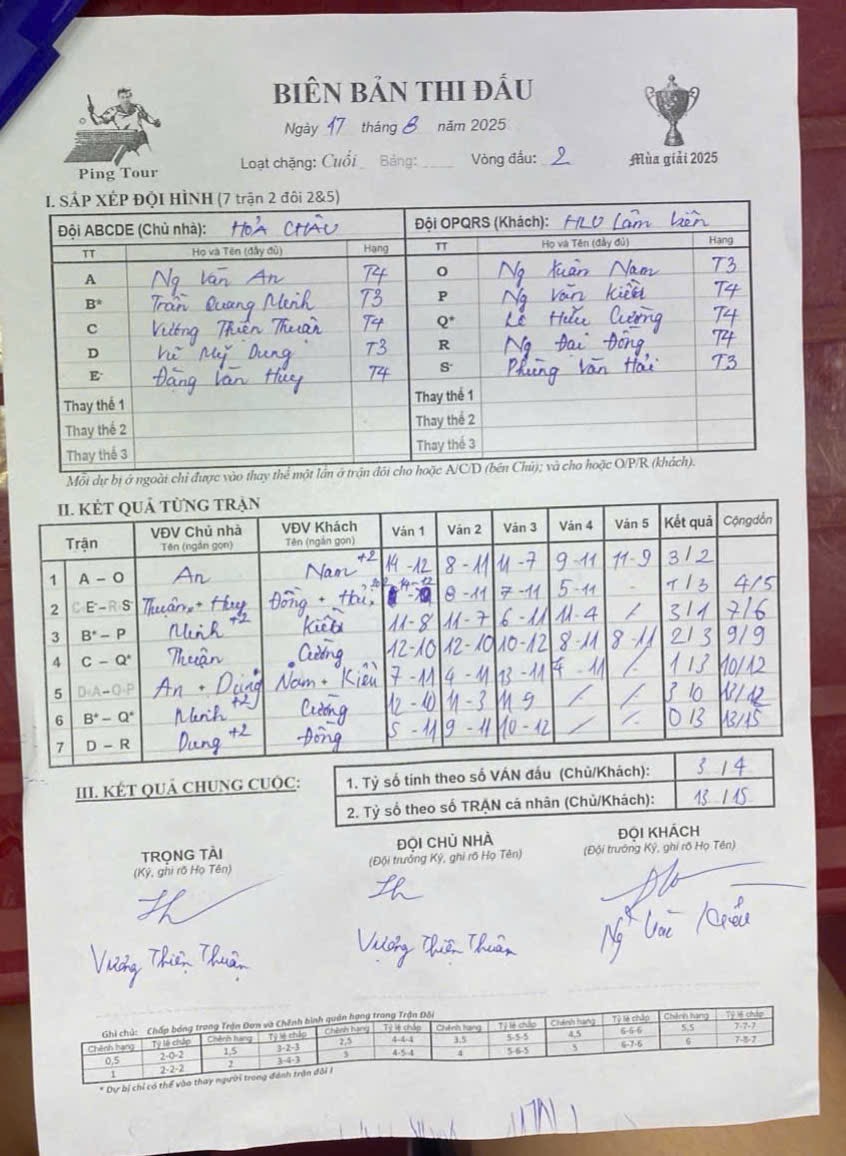 BIÊN BẢN THI ĐẤU
Ngày 17 tháng 8 năm 2025
Ping Tour
Loạt chặng: Cuối Bảng: ____ Vòng đấu: 2
Mùa giải 2025
I. SẮP XẾP ĐỘI HÌNH (7 trận 2 đôi 2&5)
Đội ABCDE (Chủ nhà): HOẢ CHÂU Đội OPQRS (Khách): HLU Lâm Viên
TT Họ và Tên (đầy đủ) Hạng TT Họ và Tên (đầy đủ) Hạng
A Ng Văn An T4 O Ng Xuân Nam T3
B* Trần Quang Minh T3 P Ng Văn Kiều T4
C Vương Thiên Thuận T4 Q* Lê Hữu Cường T4
D Vũ Mỹ Dung T3 R Ng Đại Đồng T4
E- Đặng Văn Huy T4 S- Phùng Văn Hải T3
Thay thế 1 Thay thế 1
Thay thế 2 Thay thế 2
Thay thế 3 Thay thế 3
Mỗi dự bị ở ngoài chỉ được vào thay thế một lần ở trận đôi cho hoặc A/C/D (bên Chủ); và cho hoặc O/P/R (khách).
II. KẾT QUẢ TỪNG TRẬN
Trận VĐV Chủ nhà Tên (ngắn gọn) VĐV Khách Tên (ngắn gọn) Ván 1 Ván 2 Ván 3 Ván 4 Ván 5 Kết quả Cộng dồn
1 A – O An Nam +2 14 - 12 8 - 11 11 - 7 9 - 11 11 - 9 3 / 2
2 C-E-–R-S- Thuận + Huy Đồng + Hải 14-12 8 - 11 7 - 11 5 - 11 - 1 / 3 4/5
3 B* – P Minh +2 Kiều 11 - 8 11 - 7 6 - 11 11 - 4 / 3 / 1 7/6
4 C – Q* Thuận Cường 12-10 12-10 10-12 8 - 11 8 - 11 2 / 3 9/9
5 D-A–O-P An + Dung Nam + Kiều 7 - 11 4 - 11 13 - 11 4 - 11 / 1 / 3 10/12
6 B* – Q* Minh +2 Cường 12 - 10 11 - 3 11 9 / / 3 / 0 13/12
7 D – R Dung +2 Đồng 5 - 11 9 - 11 10 - 12 / / 0 / 3 13/15
III. KẾT QUẢ CHUNG CUỘC:
1. Tỷ số tính theo số VÁN đấu (Chủ/Khách): 3 / 4
2. Tỷ số theo số TRẬN cá nhân (Chủ/Khách): 13 / 15
TRỌNG TÀI ĐỘI CHỦ NHÀ ĐỘI KHÁCH
(Ký, ghi rõ Họ Tên) (Đội trưởng Ký, ghi rõ Họ Tên) (Đội trưởng Ký, ghi rõ Họ Tên)
Vương Thiên Thuận Vương Thiên Thuận Ng Văn Kiều
Ghi chú: Chấp bóng trong Trận Đơn và Chênh bình quân hạng trong Trận Đôi
Chênh hạng Tỷ lệ chấp Chênh hạng Tỷ lệ chấp Chênh hạng Tỷ lệ chấp Chênh hạng Tỷ lệ chấp Chênh hạng Tỷ lệ chấp Chênh hạng Tỷ lệ chấp
0,5 2-0-2 1,5 3-2-3 2,5 4-4-4 3,5 5-5-5 4,5 6-6-6 5,5 7-7-7
1 2-2-2 2 3-4-3 3 4-5-4 4 5-6-5 5 6-7-6 6 7-8-7
* Dự bị chỉ có thể vào thay người trong đánh trận đôi !